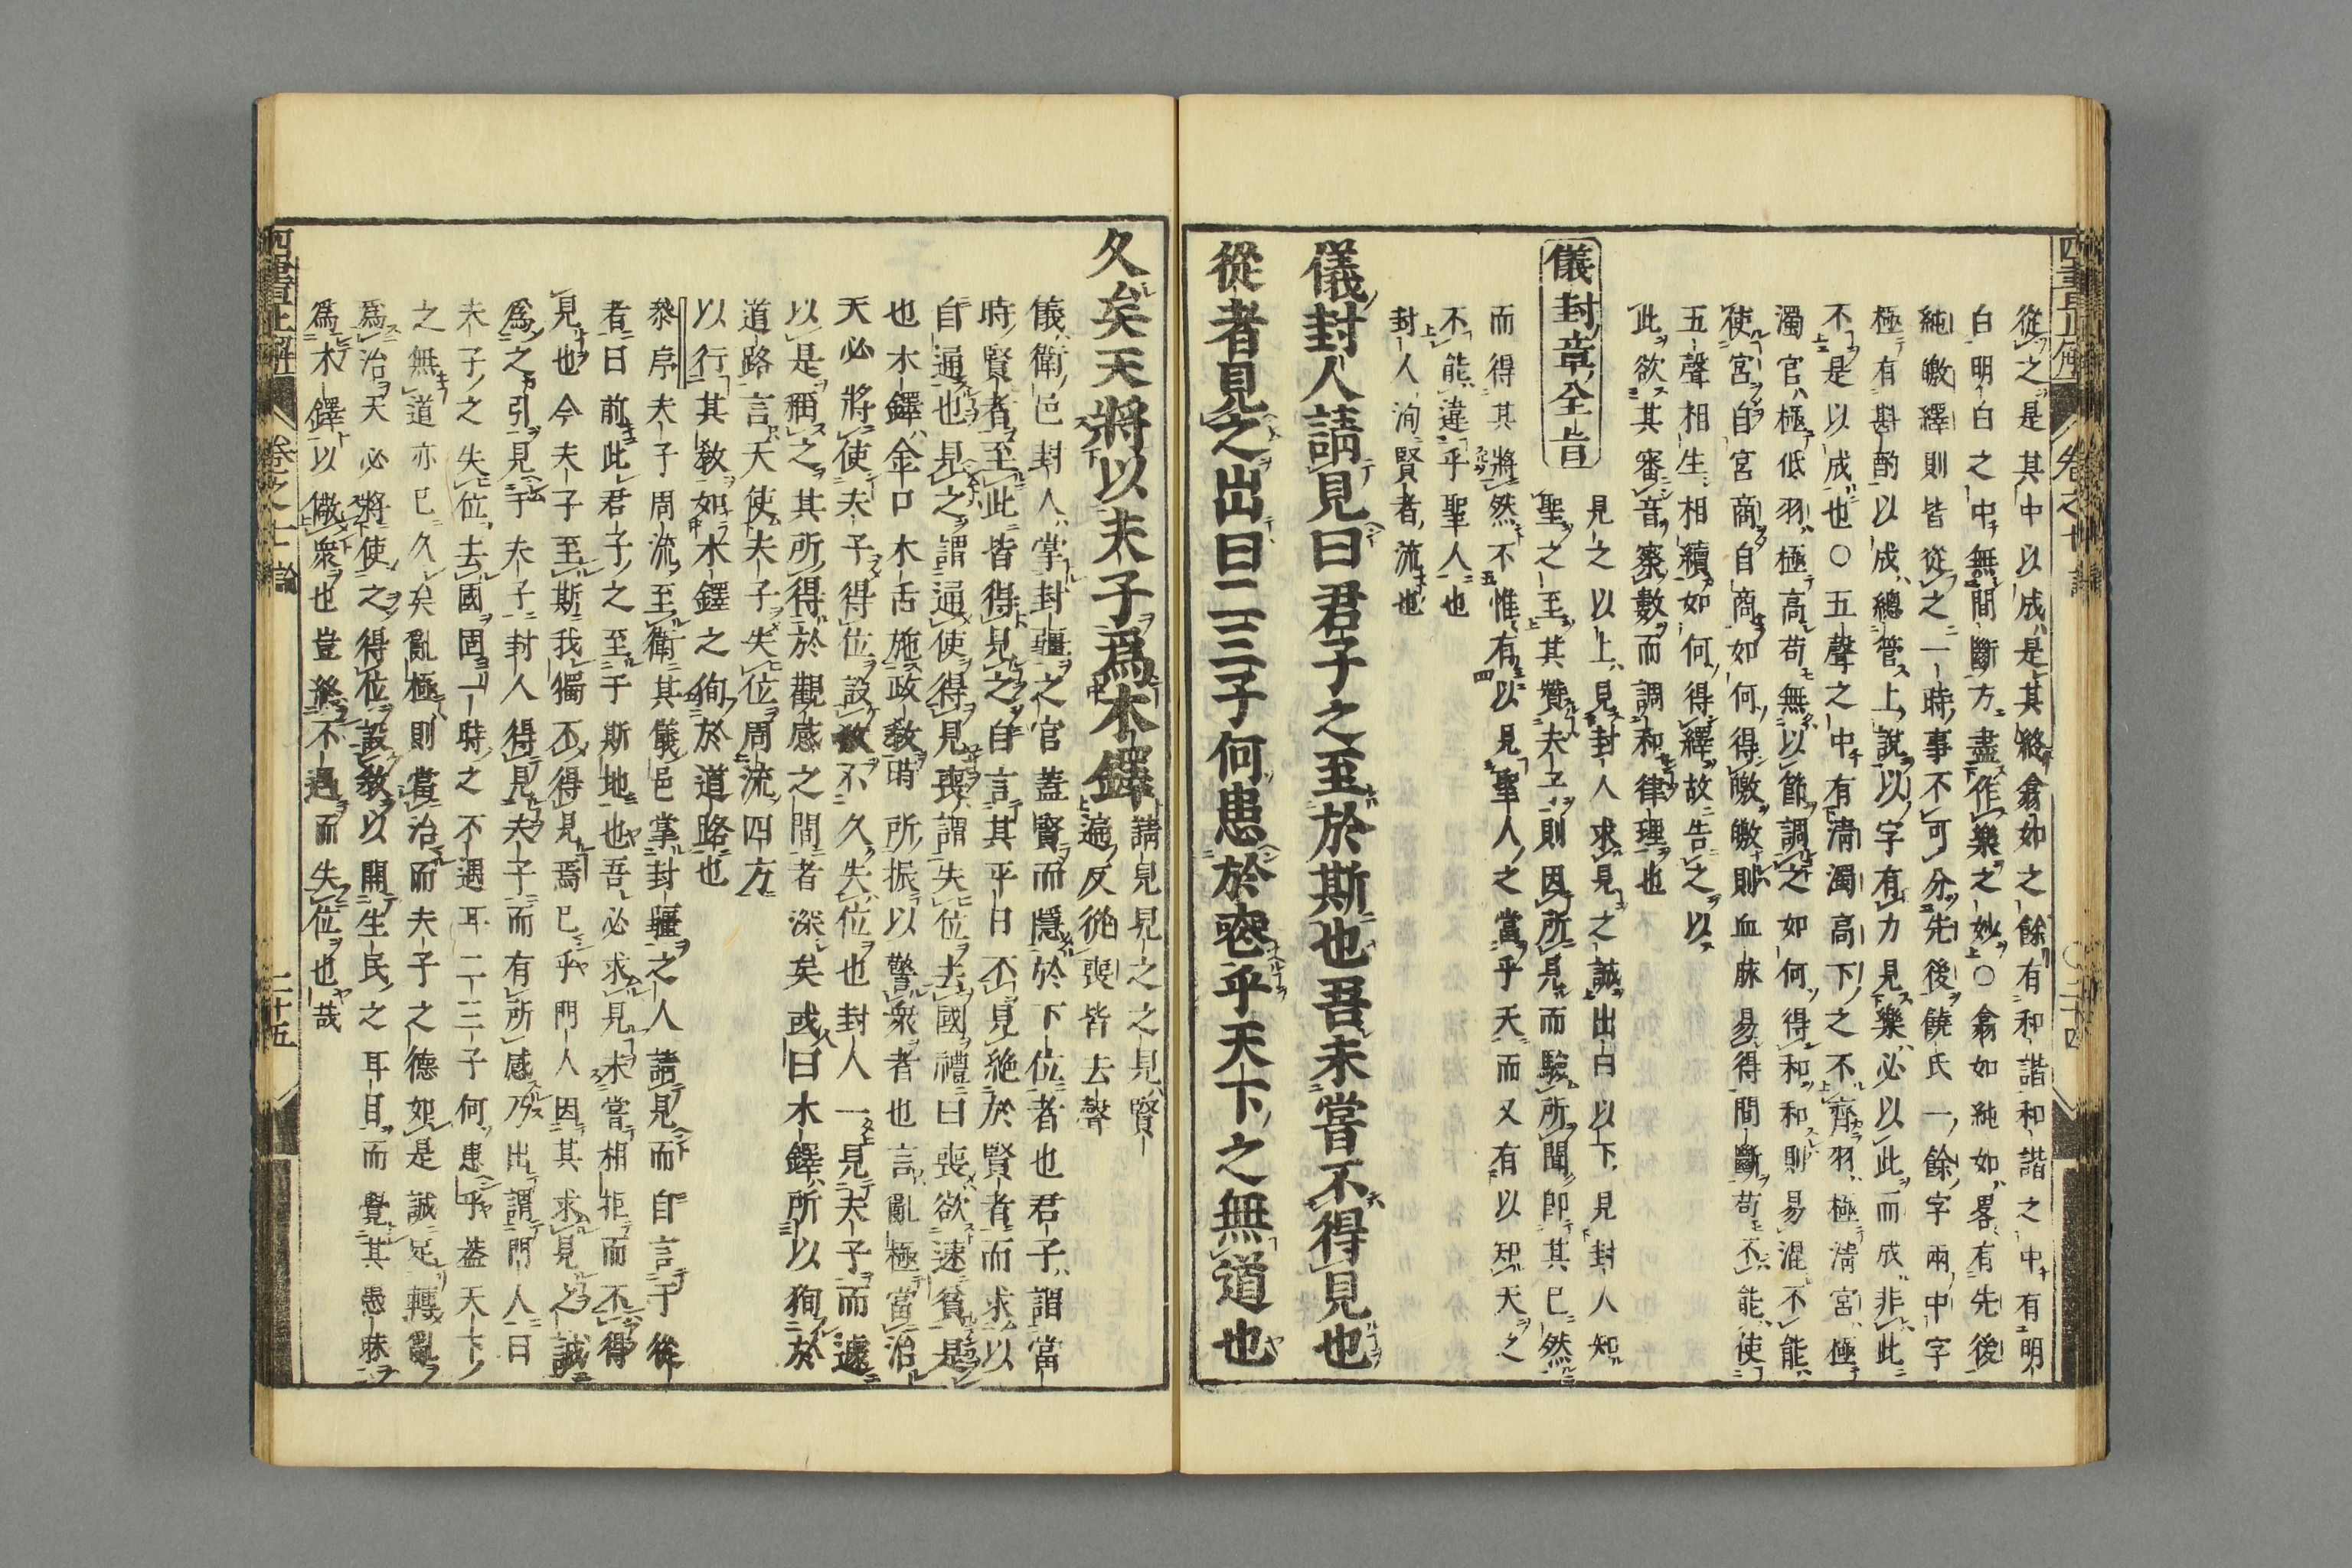 從之是其中以成是其終翕如之餘有和諧和諧之中有明
白明白之中無間斷方盡作樂之妙○翕如純如畧有先後
純皦繹則皆從之一時事不可分先後饒氏一餘字兩中字
極有斟酌以成總管上說以字有力見樂必以此而成非此
不是以成也○五聲之中有淸濁高下之不齊羽極淸宮極
濁官極低羽極高苟無以節調之如何得和和則易混不能
使宮自宮商自商如何得皦皦則血脉易得間斷苟不能使
五聲相生相續如何得繹故告之以
此欲其審音察數而調和律理也
儀封章全旨
見之以上見封人求見之誠出曰以下見封人知
聖之至其贊夫子則因所見而驗所聞卽其已然
而得其將然不惟有以見聖人之當乎天而又有以知天之
不能違乎聖人也
封人洵賢者流也
儀封人請見曰君子之至於斯也吾未嘗不得見也
從者見之出曰二三子何患於喪乎天下之無道也
久矣天將以夫子爲木鐸
請見見之之見賢
遍反從喪皆去聲
儀衛邑封人掌封疆之官蓋賢而隱於下位者也君子謂當
時賢者至此皆得見之自言其平日不見絶於賢者而求以
自通也見之謂通使得見喪謂失位去國禮曰喪欲速貧是
也木鐸金口木舌施政敎時所振以警衆者也言亂極當治
天必將使夫子得位設敎不久失位也封人一見夫子而遽
以是稱之其所得於觀感之間者深矣或曰木鐸所以徇於
道路言天使夫子失位周流四方
以行其敎如木鐸之徇於道路也
叅序夫子周流至衛其儀邑掌封疆之人請見而自言于從
者曰前此君子之至于斯地也吾必求見未嘗相拒而不得
見也今夫子至斯我獨不得見焉已乎門人因其求見之誠
爲之引見于夫子封人得見夫子而有所感乃出謂門人曰
夫子之失位去國固一時之不遇耳二三子何患乎蓋天下
之無道亦已久矣亂極則當治而夫子之德如是誠足轉亂
爲治天必將使之得位設敎以開生民之耳目而覺其愚昧
爲木鐸以儆衆也豈終不遇而失位也哉
四書正解
卷之七
論
二十五